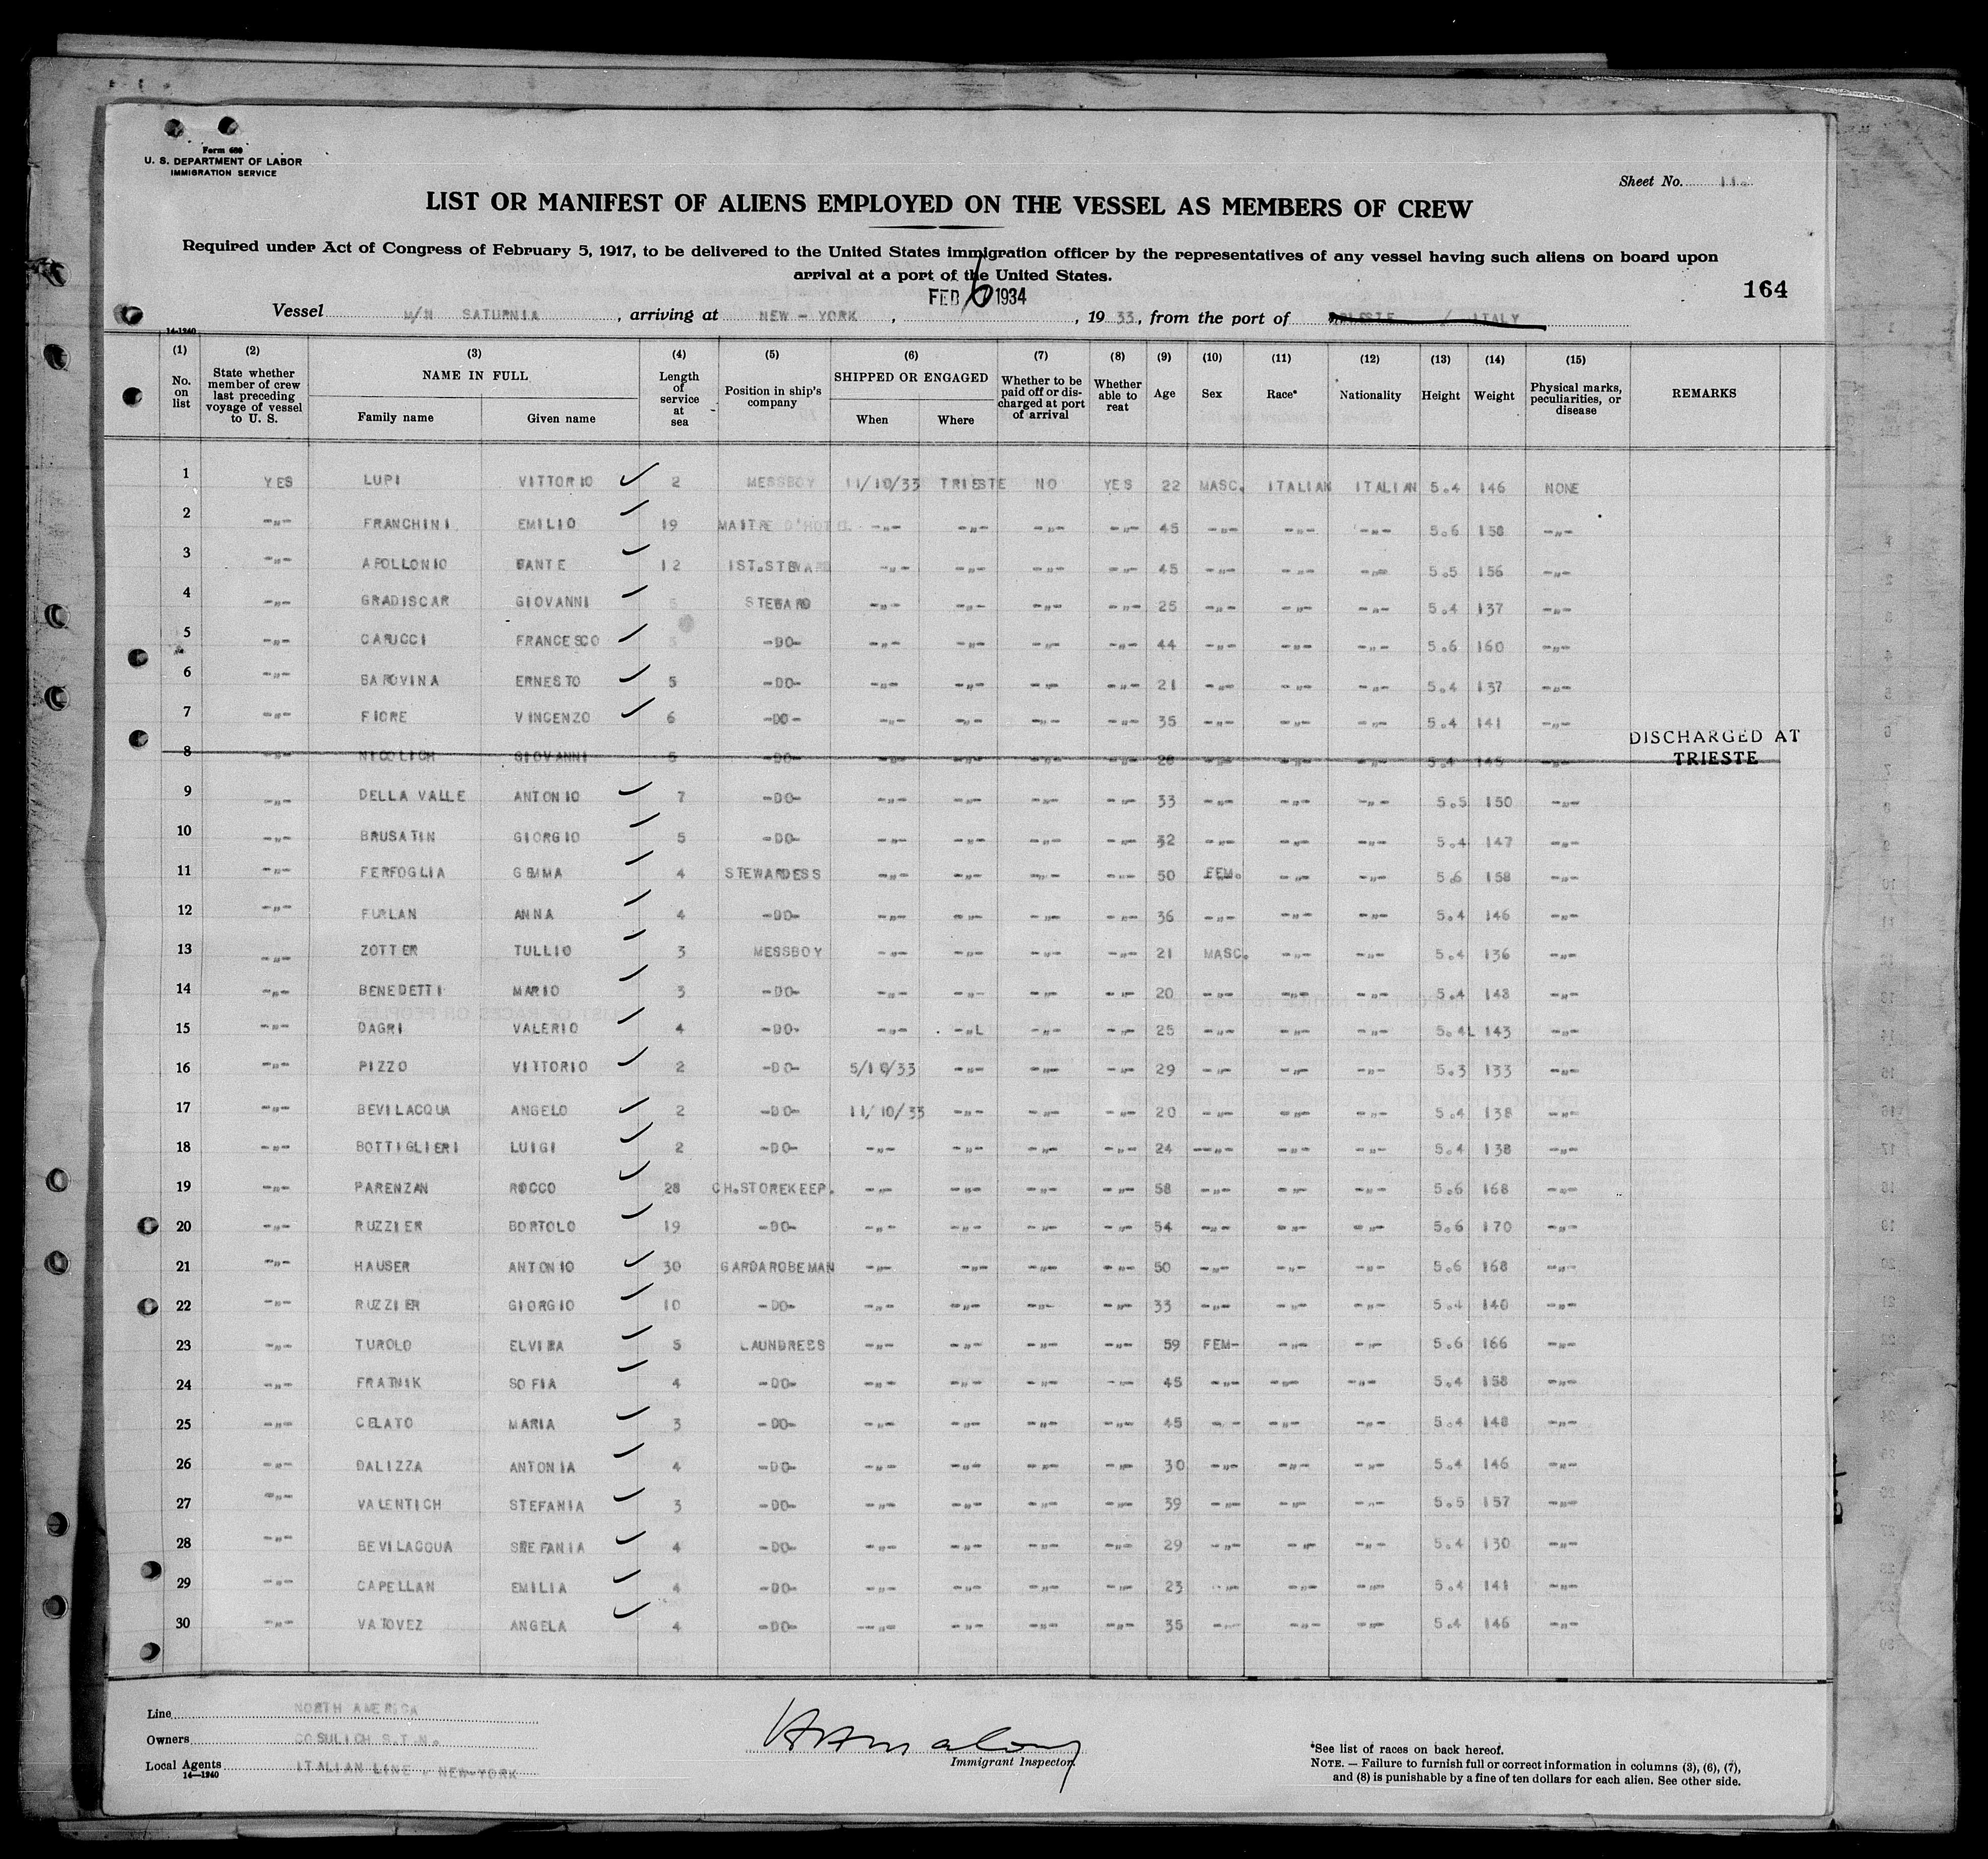 Form 680
U. S. DEPARTMENT OF LABOR
IMMIGRATION SERVICE
Sheet No.
LIST OR MANIFEST OF ALIENS EMPLOYED ON THE VESSEL AS MEMBERS OF CREW
Required under Act of Congress of February 5, 1917, to be delivered to the United States immigration officer by the representatives of any vessel having such aliens on board upon
arrival at a port of the United States.
FEB 6 1934
164
Vessel M/N SATURNIA, arriving at NEW - YORK, , 1933, from the port of TRIESTE / ITALY
14-1240
(1) No. on list (2) State whether member of crew last preceding voyage of vessel to U. S. (3) NAME IN FULL Family name Given name (4) Length of service at sea (5) Position in ship's company (6) SHIPPED OR ENGAGED When Where (7) Whether to be paid off or discharged at port of arrival (8) Whether able to reat (9) Age (10) Sex (11) Race* (12) Nationality (13) Height (14) Weight (15) Physical marks, peculiarities, or disease REMARKS
1 YES LUPI VITTORIO 2 MESSBOY 11/10/33 TRIESTE NO YES 22 MASC. ITALIAN ITALIAN 5.4 146 NONE
2 -"- FRANCHINI EMILIO 19 MAITRE D'HOTEL -"- -"- -"- -"- 45 -"- -"- -"- 5.6 158 -"-
3 -"- APOLLONIO DANTE 12 IST.STEWARD -"- -"- -"- -"- 45 -"- -"- -"- 5.5 156 -"-
4 -"- GRADISCAR GIOVANNI STEWARD -"- -"- -"- -"- 25 -"- -"- -"- 5.4 137 -"-
5 -"- CARUCCI FRANCESCO -DO- -"- -"- -"- -"- 44 -"- -"- -"- 5.6 160 -"-
6 -"- BAROVINA ERNESTO 5 -DO- -"- -"- -"- -"- 21 -"- -"- -"- 5.4 137 -"-
7 -"- FIORE VINCENZO 6 -DO- -"- -"- -"- -"- 35 -"- -"- -"- 5.4 141 -"-
8 -"- NICOLICH GIOVANNI 5 -DO- -"- -"- -"- -"- 28 -"- -"- -"- 5.4 145 -"- DISCHARGED AT TRIESTE
9 -"- DELLA VALLE ANTONIO 7 -DO- -"- -"- -"- -"- 33 -"- -"- -"- 5.5 150 -"-
10 -"- BRUSATIN GIORGIO 5 -DO- -"- -"- -"- -"- 32 -"- -"- -"- 5.4 147 -"-
11 -"- FERFOGLIA GEMMA 4 STEWARDESS -"- -"- -"- -"- 50 FEM. -"- -"- 5.6 158 -"-
12 -"- FURLAN ANNA 4 -DO- -"- -"- -"- -"- 36 -"- -"- -"- 5.4 146 -"-
13 -"- ZOTTER TULLIO 3 MESSBOY -"- -"- -"- -"- 21 MASC. -"- -"- 5.4 136 -"-
14 -"- BENEDETTI MARIO 3 -DO- -"- -"- -"- -"- 20 -"- -"- -"- 5.4 148 -"-
15 -"- DAGRI VALERIO 4 -DO- -"- -"L -"- -"- 25 -"- -"- -"- 5.4L 143 -"-
16 -"- PIZZO VITTORIO 2 -DO- 5/10/33 -"- -"- -"- 29 -"- -"- -"- 5.3 133 -"-
17 -"- BEVILACQUA ANGELO 2 -DO- 11/10/33 -"- -"- -"- 20 -"- -"- -"- 5.4 138 -"-
18 -"- BOTTIGLIERI LUIGI 2 -DO- -"- -"- -"- -"- 24 -"- -"- -"- 5.4 138 -"-
19 -"- PARENZAN ROCCO 28 CH.STOREKEEP. -"- -"- -"- -"- 58 -"- -"- -"- 5.6 168 -"-
20 -"- RUZZIER BORTOLO 19 -DO- -"- -"- -"- -"- 54 -"- -"- -"- 5.6 170 -"-
21 -"- HAUSER ANTONIO 30 GARDAROBEMAN -"- -"- -"- -"- 50 -"- -"- -"- 5.6 168 -"-
22 -"- RUZZIER GIORGIO 10 -DO- -"- -"- -"- -"- 33 -"- -"- -"- 5.4 140 -"-
23 -"- TUROLO ELVIRA 5 LAUNDRESS -"- -"- -"- -"- 59 FEM- -"- -"- 5.6 166 -"-
24 -"- FRATNIK SOFIA 4 -DO- -"- -"- -"- -"- 45 -"- -"- -"- 5.4 158 -"-
25 -"- CELATO MARIA 3 -DO- -"- -"- -"- -"- 45 -"- -"- -"- 5.4 148 -"-
26 -"- DALIZZA ANTONIA 4 -DO- -"- -"- -"- -"- 30 -"- -"- -"- 5.4 146 -"-
27 -"- VALENTICH STEFANIA 3 -DO- -"- -"- -"- -"- 39 -"- -"- -"- 5.5 157 -"-
28 -"- BEVILACQUA STEFANIA 4 -DO- -"- -"- -"- -"- 29 -"- -"- -"- 5.4 130 -"-
29 -"- CAPELLAN EMILIA 4 -DO- -"- -"- -"- -"- 23 -"- -"- -"- 5.4 141 -"-
30 -"- VATOVEZ ANGELA 4 -DO- -"- -"- -"- -"- 35 -"- -"- -"- 5.4 146 -"-
Line NORTH AMERICA
Owners COSULICH S.T.N.
Local Agents ITALIAN LINE - NEW-YORK
14-1240
Immigrant Inspector.
*See list of races on back hereof.
NOTE. — Failure to furnish full or correct information in columns (3), (6), (7),
and (8) is punishable by a fine of ten dollars for each alien. See other side.